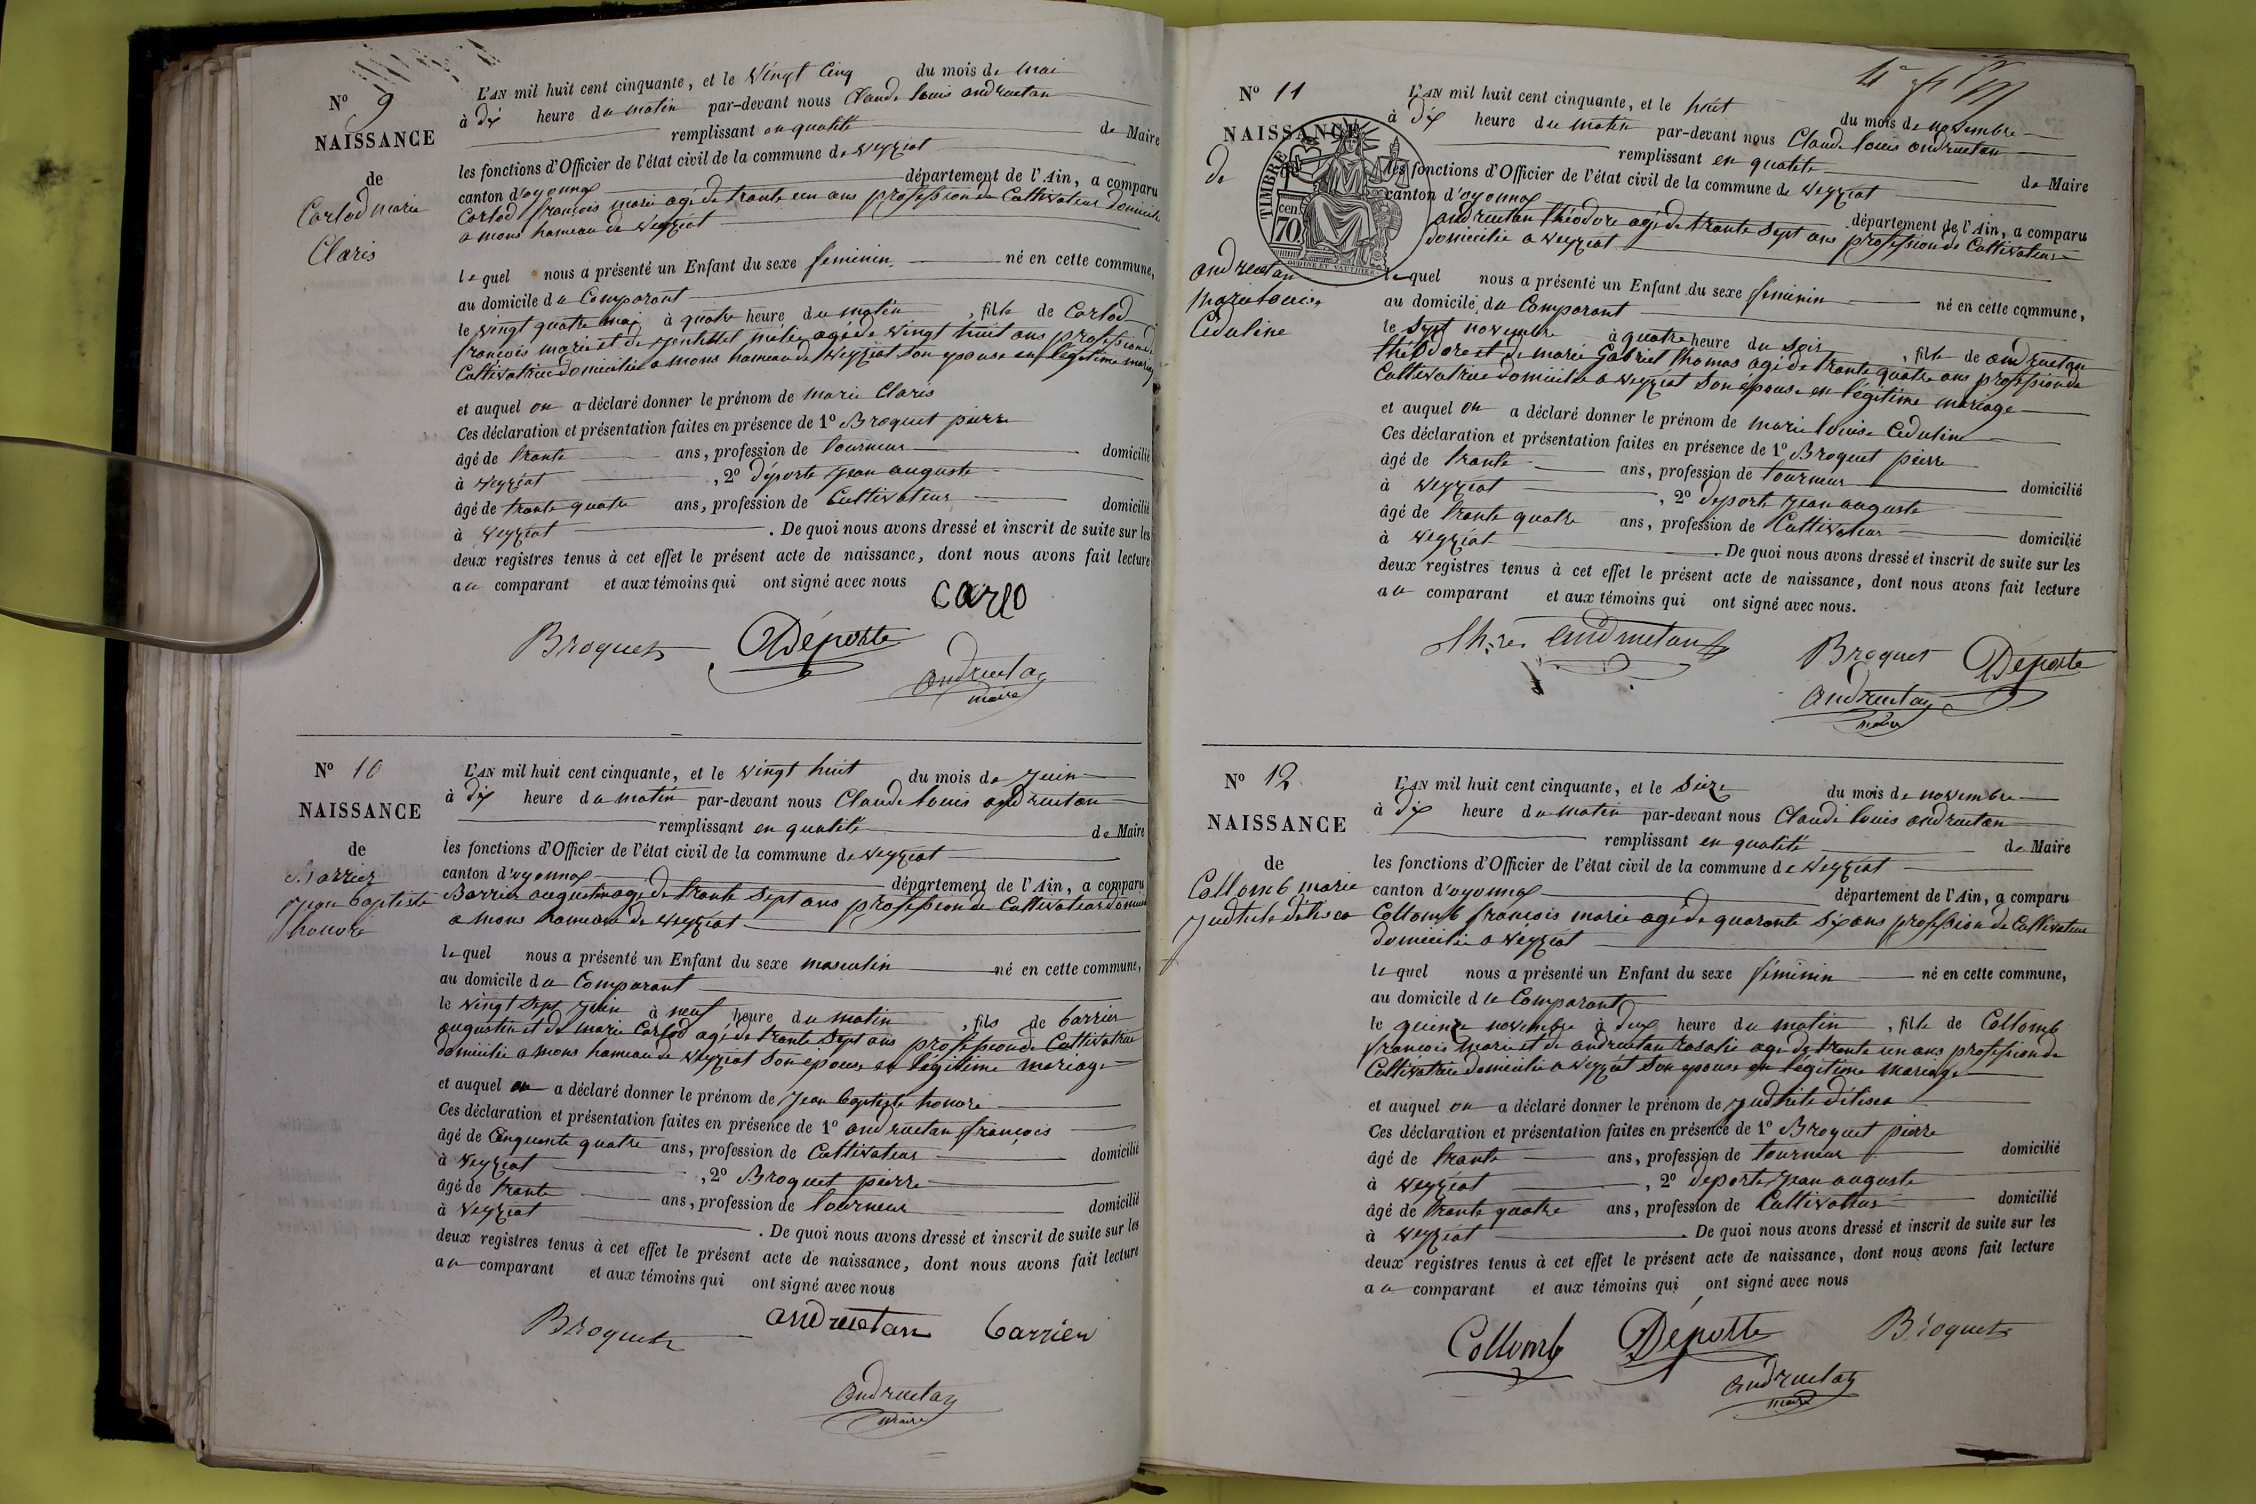 N° 9
NAISSANCE
de
Carlod marie
Claris
L'AN mil huit cent cinquante, et le vingt cinq du mois de mai
à dix heure du matin par-devant nous Claude louis andruetan
remplissant en qualité de Maire
les fonctions d'Officier de l'état civil de la commune de veyziat
canton d'oyonnax département de l'Ain, a comparu
Carlod françois marie agé de trante un ans profession de Cultivateur domicilié
a mons hameau de veyziat
le quel nous a présenté un Enfant du sexe feminin né en cette commune,
au domicile du Comparant
le vingt quatre mai à quatre heure du matin, fille de Carlod
françois marie et de agé de vingt huit ans profession de
Cultivatrice domiciliée a mons hameau de veyziat son epouse en légitime mariage
et auquel on a déclaré donner le prénom de marie Claris
Ces déclaration et présentation faites en présence de 1° Broquet pierre
âgé de trante ans, profession de tourneur domicilié
à veyziat, 2° déporte jean auguste
âgé de trante quatre ans, profession de Cultivateur domicilié
à veyziat. De quoi nous avons dressé et inscrit de suite sur les
deux registres tenus à cet effet le présent acte de naissance, dont nous avons fait lecture
au comparant et aux témoins qui ont signé avec nous
carlo
Broquet Déporte
andruetan
maire
N° 10
NAISSANCE
de
Barrier
jean baptiste
honoré
L'AN mil huit cent cinquante, et le vingt huit du mois de juin
à dix heure du matin par-devant nous Claude louis andruetan
remplissant en qualité de Maire
les fonctions d'Officier de l'état civil de la commune de veyziat
canton d'oyonnax département de l'Ain, a comparu
Barrier augustin agé de trante sept ans profession de Cultivateur domicilié
a mons hameau de veyziat
le quel nous a présenté un Enfant du sexe masculin né en cette commune,
au domicile du Comparant
le vingt sept juin à neuf heure du matin, fils de barrier
augustin et de marie Carlod agé de trante sept ans profession de Cultivatrice
domiciliée a mons hameau de veyziat son epouse en légitime mariage
et auquel on a déclaré donner le prénom de jean baptiste honoré
Ces déclaration et présentation faites en présence de 1° andruetan françois
âgé de Cinquante quatre ans, profession de Cultivateur domicilié
à veyziat, 2° Broquet pierre
âgé de trante ans, profession de tourneur domicilié
à veyziat. De quoi nous avons dressé et inscrit de suite sur les
deux registres tenus à cet effet le présent acte de naissance, dont nous avons fait lecture
au comparant et aux témoins qui ont signé avec nous
Broquet andruetan barrier
andruetan
maire
N° 11
NAISSANCE
de
andruetan
marie louise
Céduline
TIMBRE
cen. 70
L'AN mil huit cent cinquante, et le huit du mois de novembre
à dix heure du matin par-devant nous Claude louis andruetan
remplissant en qualité de Maire
les fonctions d'Officier de l'état civil de la commune de veyziat
canton d'oyonnax département de l'Ain, a comparu
andruetan théodore agé de trante sept ans profession de Cultivateur
domicilié a veyziat
le quel nous a présenté un Enfant du sexe féminin né en cette commune,
au domicile du Comparant
le sept novembre à quatre heure du soir, fille de andruetan
théodore et de marie Gabriel thomas agé de trante quatre ans profession de
Cultivatrice domiciliée a veyziat son épouse en légitime mariage
et auquel on a déclaré donner le prénom de marie louise Céduline
Ces déclaration et présentation faites en présence de 1° Broquet pierre
âgé de trante ans, profession de tourneur domicilié
à veyziat, 2° deporte jean auguste
âgé de trante quatre ans, profession de Cultivateur domicilié
à veyziat. De quoi nous avons dressé et inscrit de suite sur les
deux registres tenus à cet effet le présent acte de naissance, dont nous avons fait lecture
au comparant et aux témoins qui ont signé avec nous.
andruetan
Broquet Déporte
andruetan
maire
N° 12
NAISSANCE
de
Collomb marie
judhite délisca
L'AN mil huit cent cinquante, et le seize du mois de novembre
à dix heure du matin par-devant nous Claude louis andruetan
remplissant en qualité de Maire
les fonctions d'Officier de l'état civil de la commune de veyziat
canton d'oyonnax département de l'Ain, a comparu
Collomb françois marie agé de quarante six ans profession de Cultivateur
domicilié a veyziat
le quel nous a présenté un Enfant du sexe féminin né en cette commune,
au domicile du Comparant
le quinze novembre à deux heure du matin, fille de Collomb
françois marie et de andruetan rosalie agé de trante un ans profession de
Cultivatrice domiciliée a veyziat son epouse en légitime mariage
et auquel on a déclaré donner le prénom de judhite délisca
Ces déclaration et présentation faites en présence de 1° Broquet pierre
âgé de trante ans, profession de tourneur domicilié
à veyziat, 2° deporte jean auguste
âgé de trante quatre ans, profession de Cultivateur domicilié
à veyziat. De quoi nous avons dressé et inscrit de suite sur les
deux registres tenus à cet effet le présent acte de naissance, dont nous avons fait lecture
au comparant et aux témoins qui ont signé avec nous
Collomb Déporte Broquet
andruetan
maire